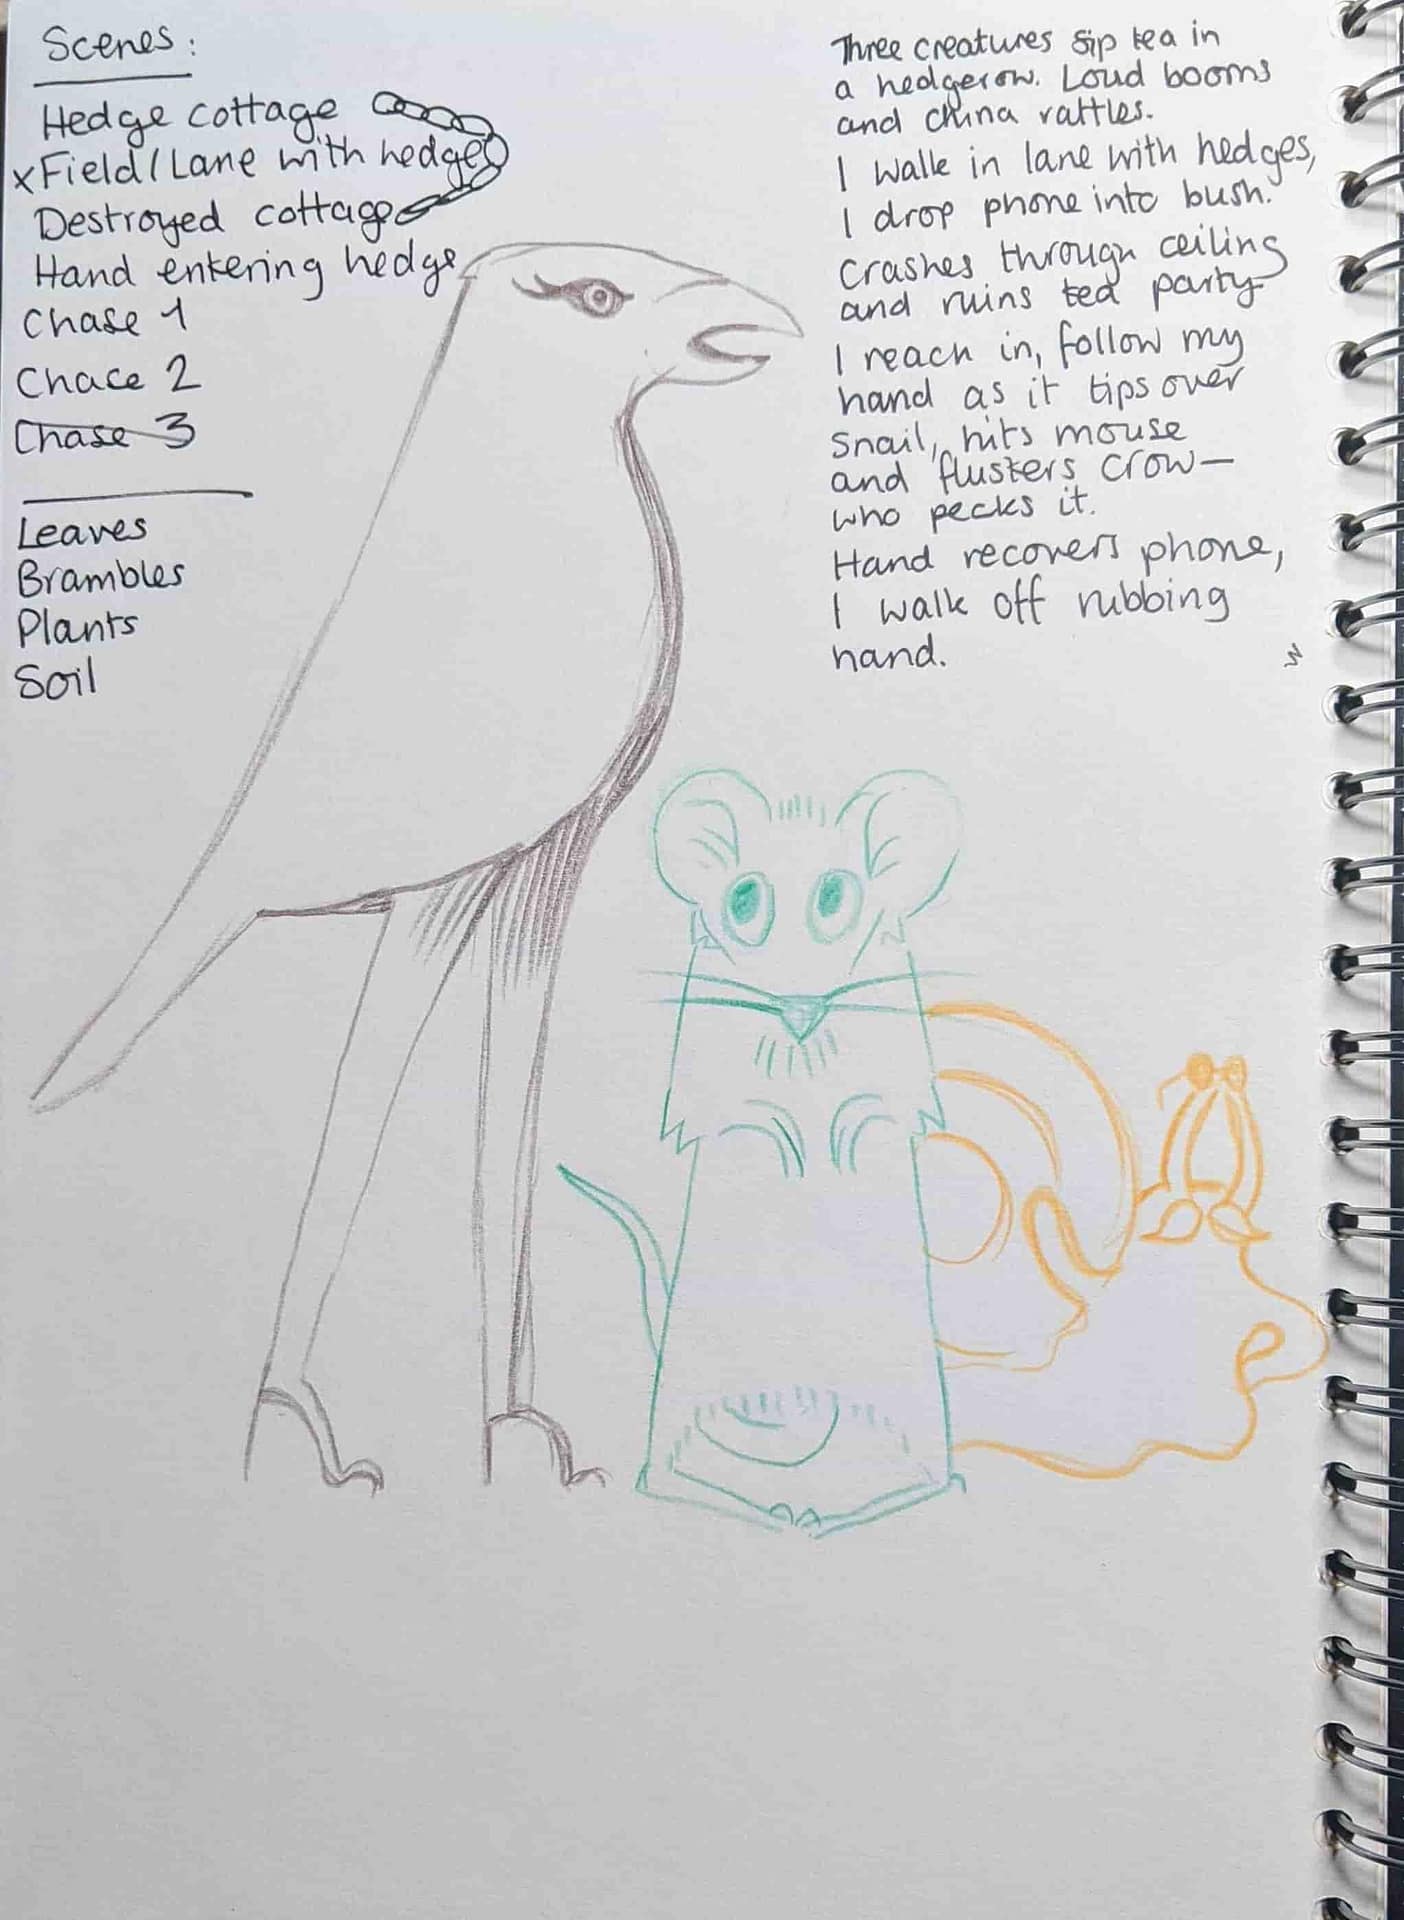 Scenes:
Hedge cottage
x Field/Lane with hedge
Destroyed cottage
Hand entering hedge
Chase 1
Chace 2
Chase 3
Leaves
Brambles
Plants
Soil
Three creatures sip tea in
a hedgerow. Loud booms
and china rattles.
I walk in lane with hedges,
I drop phone into bush.
Crashes through ceiling
and ruins tea party
I reach in, follow my
hand as it tips over
snail, hits mouse
and flusters crow—
who pecks it.
Hand recovers phone,
I walk off rubbing
hand.